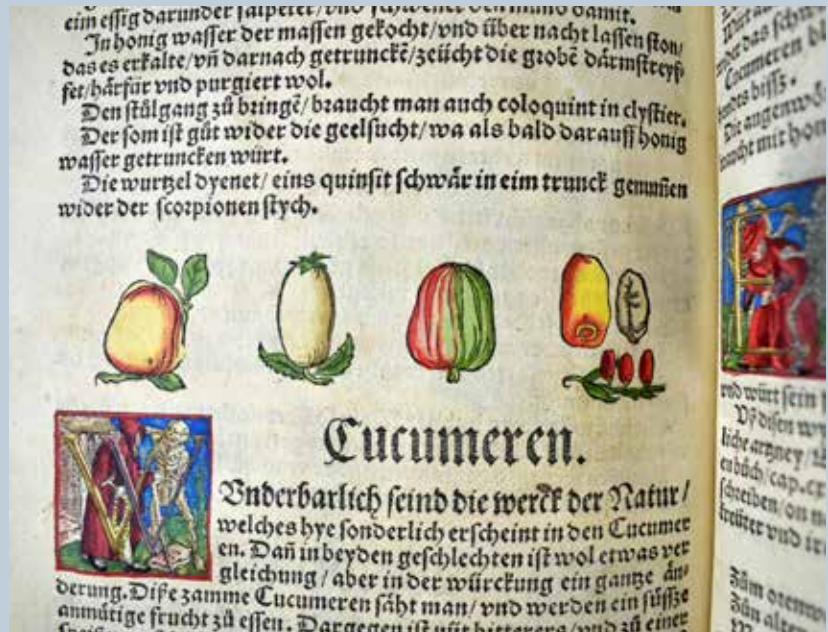 eim essig darunder salpeter/vnd schwenck den mund damit.
In honig wasser der massen gekocht/vnd über nacht lassen ston/
das es erkalte/vñ darnach getrunckẽ/zeücht die grobẽ därmstreyf
fet/härfür vnd purgiert wol.
Den stůlgang zů bringẽ/braucht man auch coloquint in clystier.
Der som ist gůt wider die geelsucht/wa als bald darauff honig
wasser getruncken würt.
Die wurtzel dyenet/eins quinsit schwär in eim trunck genummen
wider der scorpionen stych.
Cucumeren.
WVnderbarlich seind die werck der Natur/
welches hye sonderlich erscheint in den Cucumer
en. Dañ in beyden geschlechten ist wol etwas ver
gleichung/aber in der würckung ein gantze än-
derung. Diße zamme Cucumeren säht man/vnd werden ein süsse
anmůtige frucht zů essen. Dargegen ist nüt bitterers/vnd zů einer
das schw
Cucumeren bl
hundts bissz.
Die augenwe
macht mit hon
vnd würt sein
Vß disen
liche artzney
enbůch/cap.cx
schreiben/on
kreüter vnd
Zům
Zůn alten